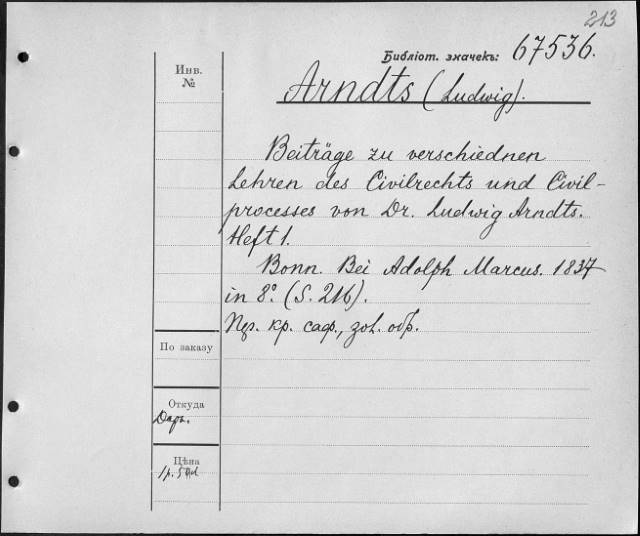 213
Библіот. значекъ: 67536.
Инв.
№
Arndts (Ludwig).
Beiträge zu verschiednen
Lehren des Civilrechts und Civil-
processes von Dr. Ludwig Arndts.
Heft 1.
Bonn. Bei Adolph Marcus. 1837
in 8º. (S. 216).
кр. саф., зол. обр.
По заказу
Откуда
Даръ.
Цѣна
1р.